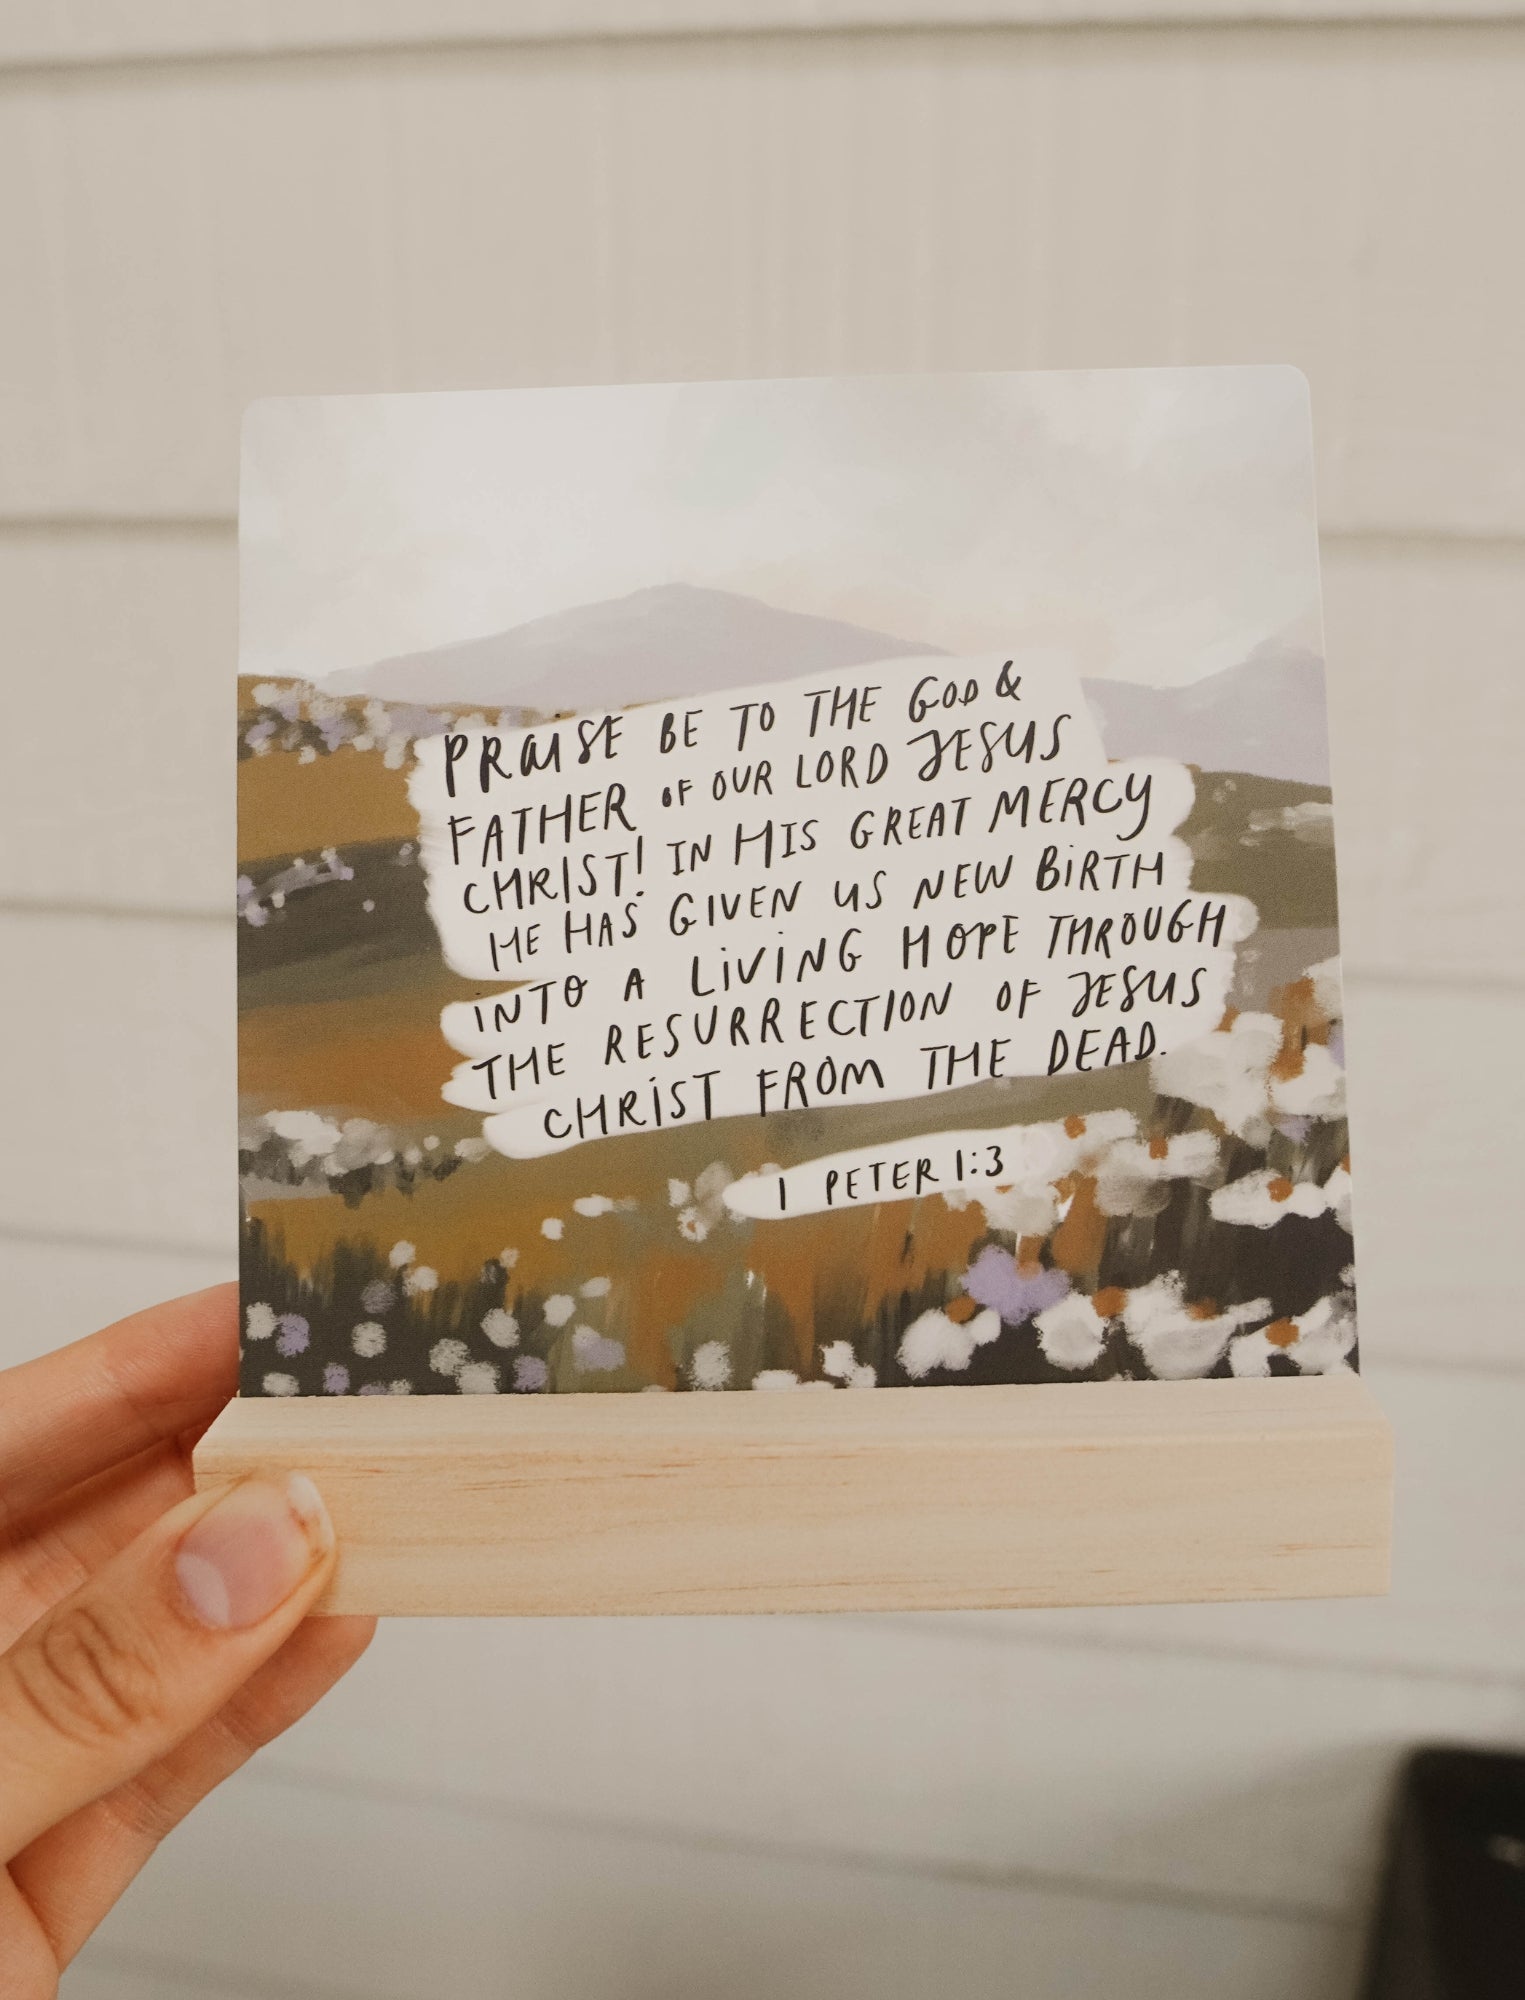 PRAISE BE TO THE GOD &
FATHER OF OUR LORD JESUS
CHRIST! IN HIS GREAT MERCY
HE HAS GIVEN US NEW BIRTH
INTO A LIVING HOPE THROUGH
THE RESURRECTION OF JESUS
CHRIST FROM THE DEAD.
1 PETER 1:3